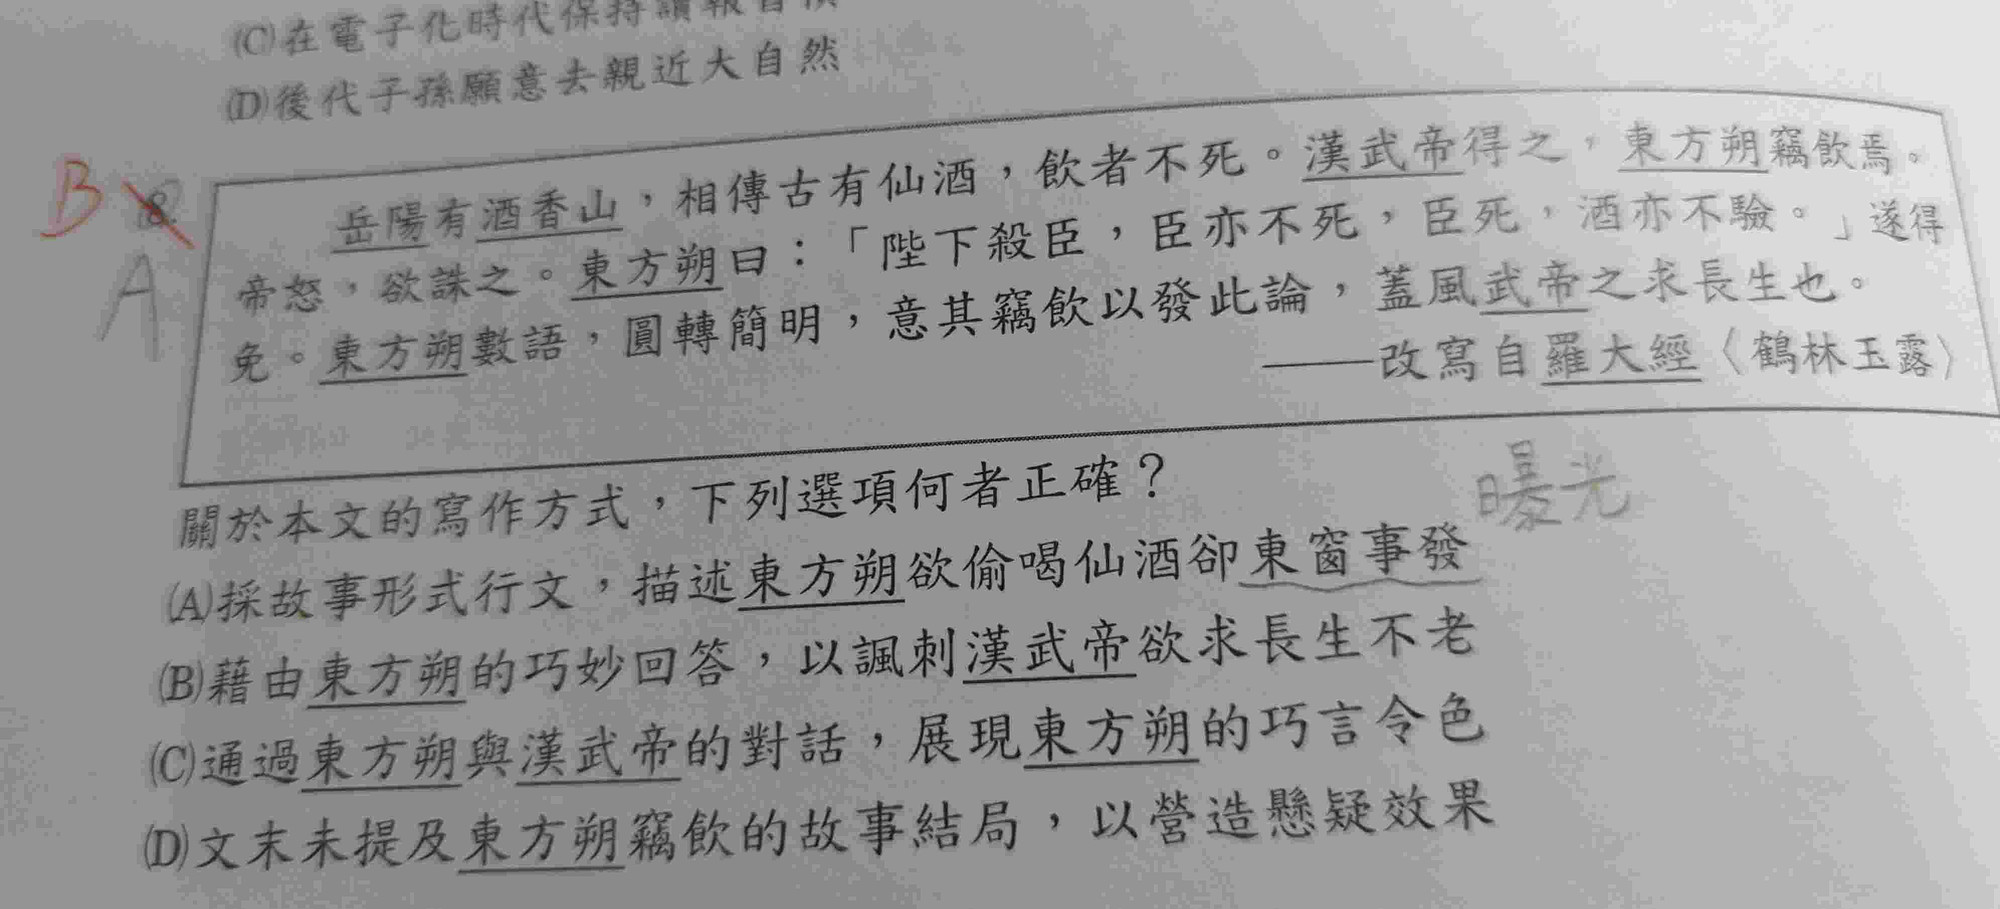 (C)在電子化時代保持讀報習慣
(D)後代子孫願意去親近大自然
B 8.
A
岳陽有酒香山，相傳古有仙酒，飲者不死。漢武帝得之，東方朔竊飲焉。
帝怒，欲誅之。東方朔曰：「陛下殺臣，臣亦不死，臣死，酒亦不驗。」遂得
免。東方朔數語，圓轉簡明，意其竊飲以發此論，蓋風武帝之求長生也。
——改寫自羅大經〈鶴林玉露〉
關於本文的寫作方式，下列選項何者正確？
曝光
(A)採故事形式行文，描述東方朔欲偷喝仙酒卻東窗事發
(B)藉由東方朔的巧妙回答，以諷刺漢武帝欲求長生不老
(C)通過東方朔與漢武帝的對話，展現東方朔的巧言令色
(D)文末未提及東方朔竊飲的故事結局，以營造懸疑效果